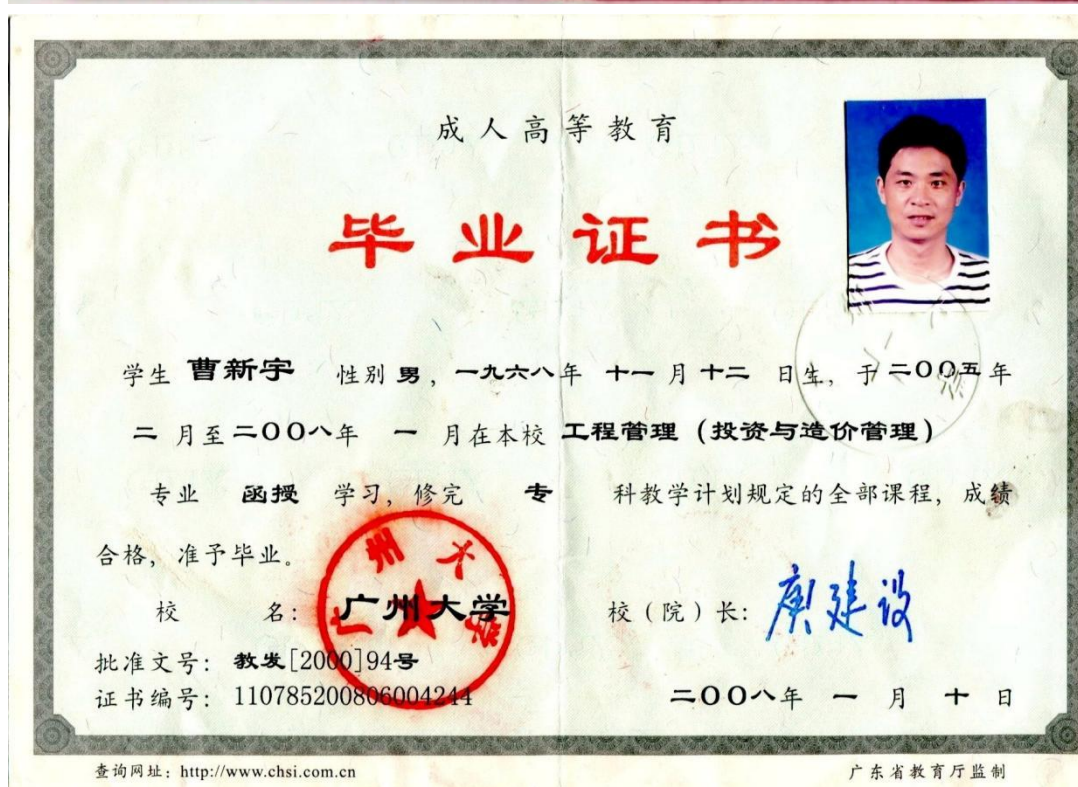 成人高等教育
毕业证书
学生 曹新宇 性别 男，一九六八年 十一 月 十二 日生，于 二〇〇五年
二 月至 二〇〇八年 一 月在本校 工程管理（投资与造价管理）
专业 函授 学习，修完 专 科教学计划规定的全部课程，成绩
合格，准予毕业。
校 名： 广州大学 校（院）长： 庾建设
广州大学
批准文号： 教发[2000]94号
证书编号： 110785200806004244 二〇〇八年 一 月 十 日
查询网址：http://www.chsi.com.cn 广东省教育厅监制